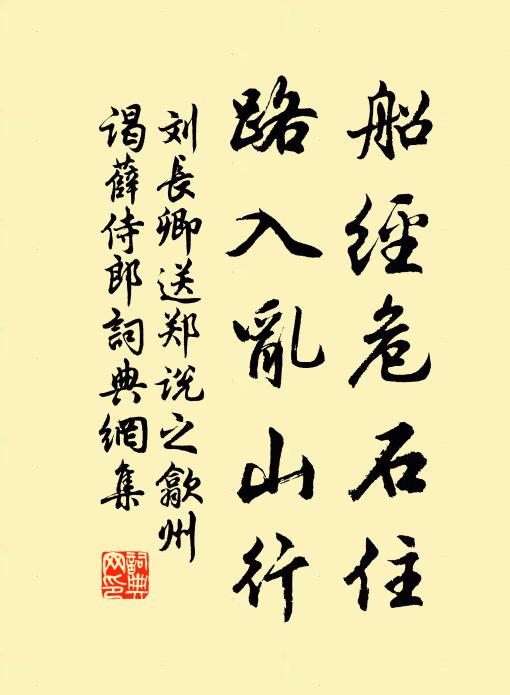 船經危石住
路入亂山行
刘長卿送郑说之歙州
谒薛侍郎詞典網集
詞典
网印